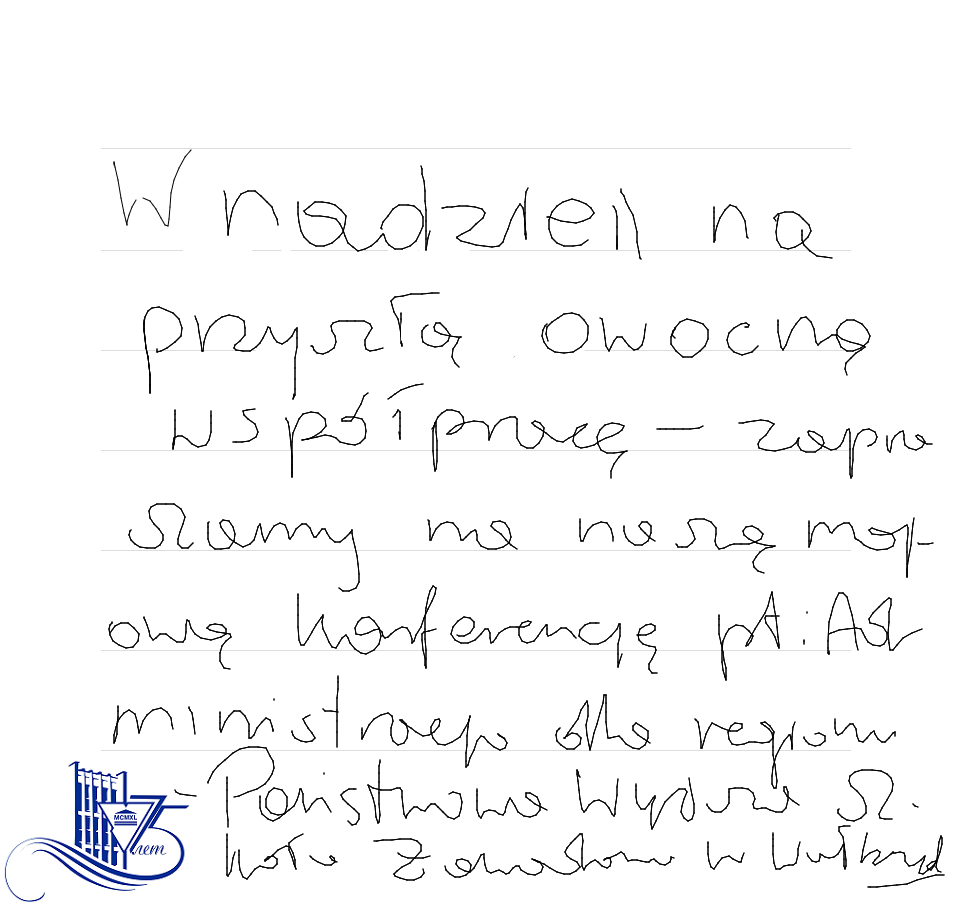 W nadziei na
przyszłą owocną
współpracę – zapra
szamy na naszą maj-
ową konferencję pt: Ad
ministracja dla regionu
- Państwowa Wyższa Sz.
koła Zawodowa w
MCMXL
75 лет